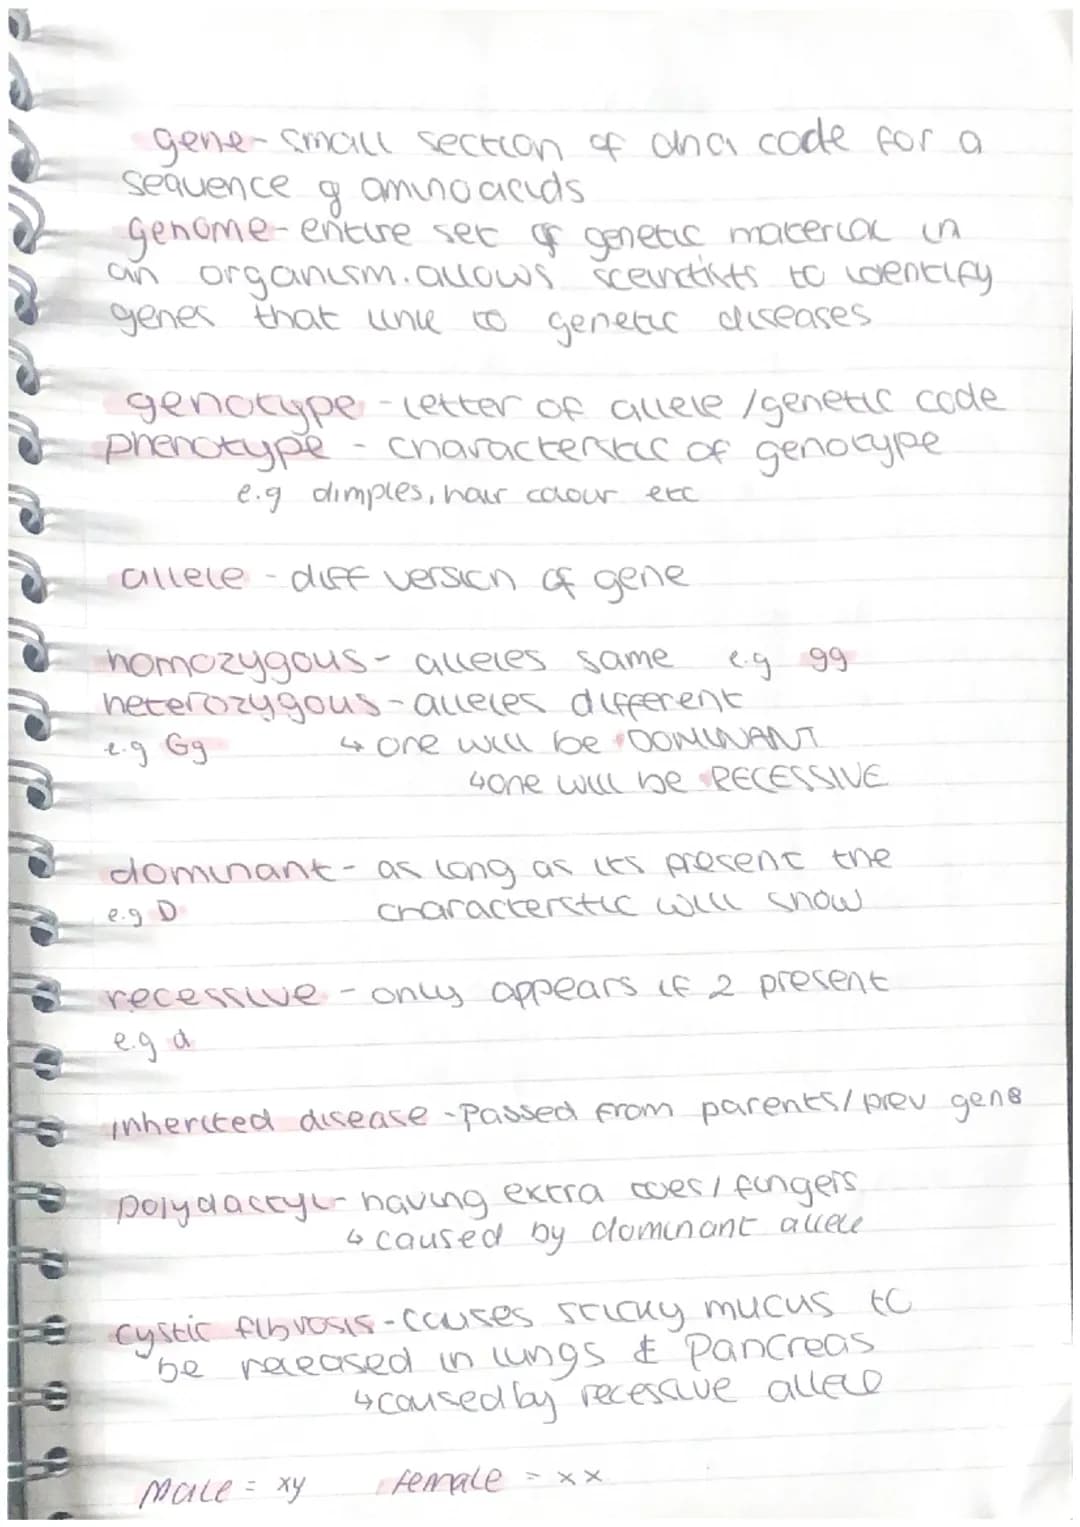 gene - small section of dna code for a
sequence of aminoacids
genome - entire set of genetic material in
an organism. allows sceinctists to identify
genes that link to genetic diseases
genotype - letter of allele / genetic code
phenotype - characterstic of genotype
e.g dimples, hair colour etc
allele - diff version of gene
homozygous - alleles same e.g gg
heterozygous - alleles different
e.g Gg ↳ one will be DOMINANT
↳ one will be RECESSIVE
dominant - as long as its present the
e.g D characterstic will show
recessive - only appears if 2 present
e.g d
inherited disease - Passed from parents / prev gens
polydactyl - having extra toes / fingers
↳ caused by dominant allele
cystic fibrosis - causes sticky mucus to
be released in lungs & Pancreas
↳ caused by recessive allele
Male = xy female = xx